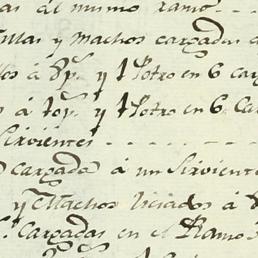 as al mismo ramo
mulas y machos cargados
á 8p.s y 1 Potro en 6 car
s á 10p.s y 1 Potro en 6 Ca
Sirvientes
cargada á un Sirvient
y Machos liciados á
Cargadas en el Ramo